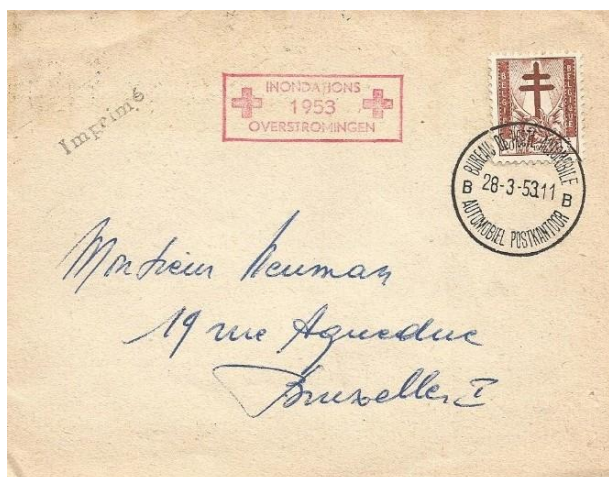 Imprimé
INONDATIONS
1953
OVERSTROMINGEN
BELGIE BELGIQUE
BUREAU DE POSTE AUTOMOBILE
B 28-3-53.11 B
AUTOMOBIEL POSTKANTOOR
Monsieur Neuman
19 rue Aqueduc
Bruxelles I